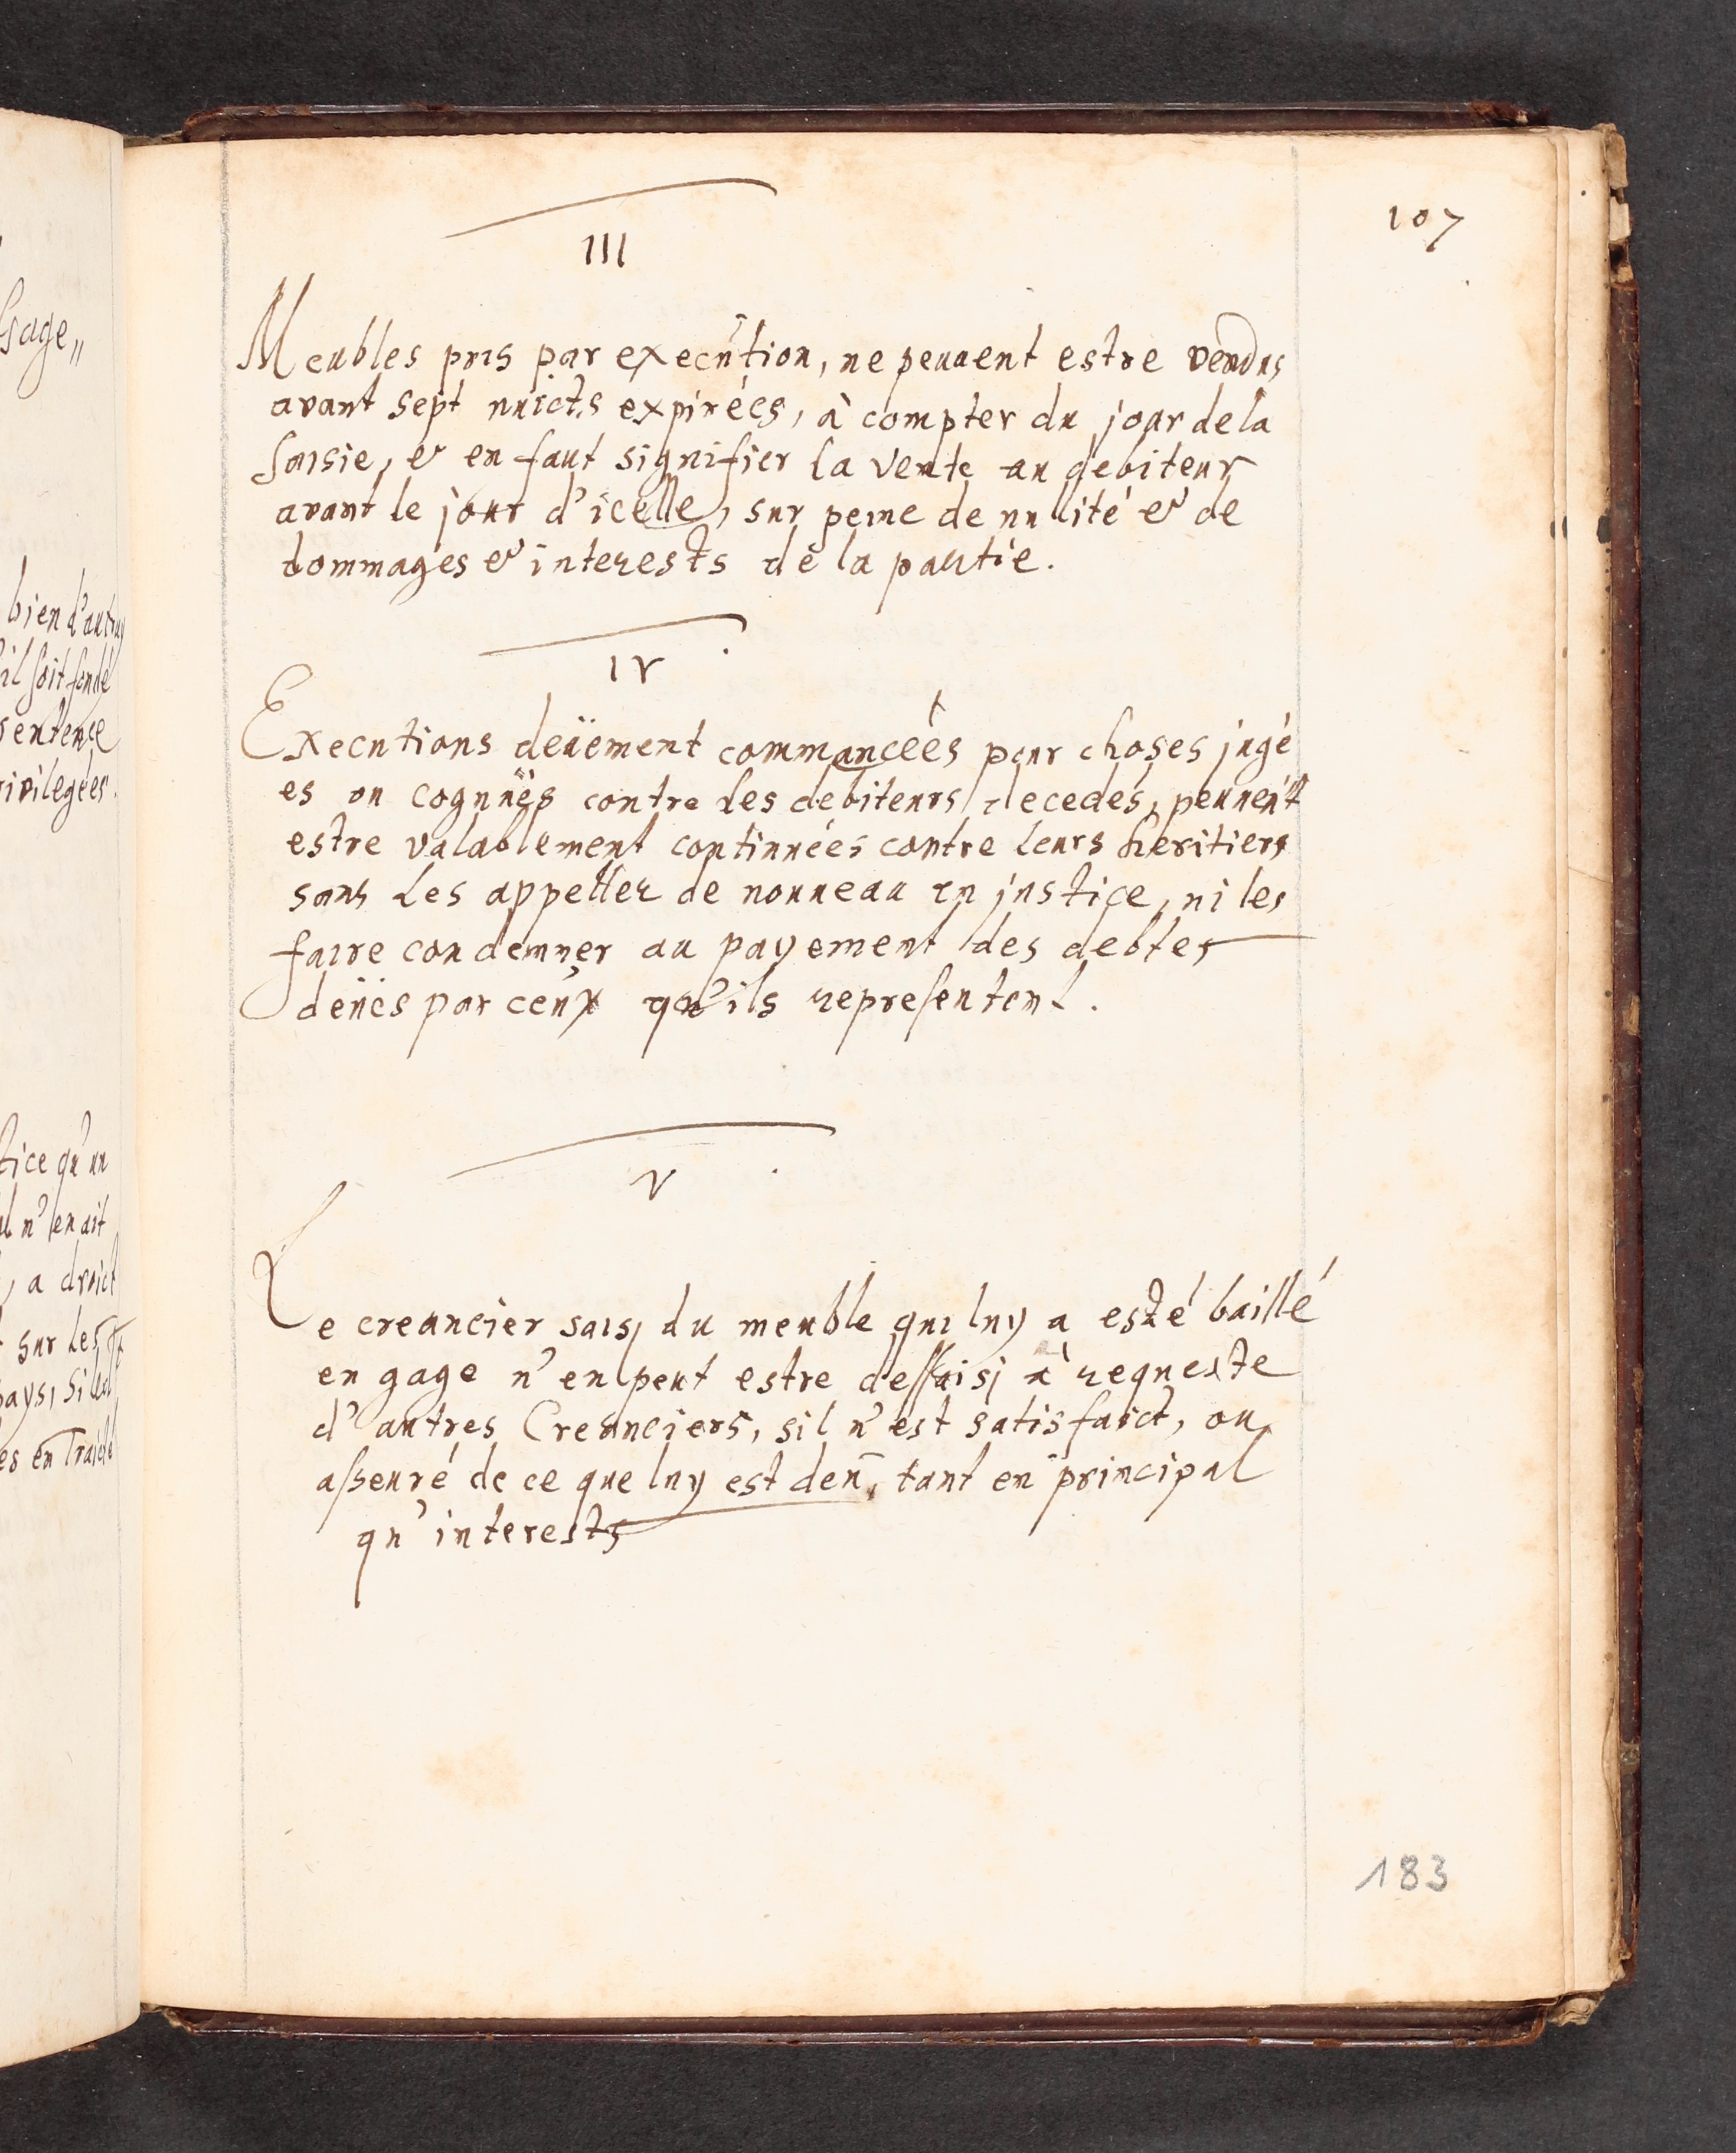 107
III
Meubles pris par execution, ne peuuent estre vendus
avant sept nuicts expirées, à compter du jour de la
saisie, & en faut signifier la vente au debiteur
avant le jour d'icelle, sur peine de nullité & de
dommages & interests de la partie.
IV
Executions deuëment commancées pour choses jugé
es ou cognuës contre les debiteurs decedés, peuuent
estre valablement continuées contre leurs heritiers
sans les appeller de nouueau en justice, ni les
faire condemner au payement des debtes
deües par ceux qu'ils representent.
V
Le creancier saisi du meuble qui luy a esté baillé
en gage n'en peut estre dessaisi à requeste
d'autres Creanciers, sil n'est satisfaict, ou
asseuré de ce que luy est deu, tant en principal
qu'interests
183
sage„
bien d'autruy
il soit fondé
sentence
rivilegées.
tice qu'un
n'en ait
, a droict
sur les
pays, si
es en